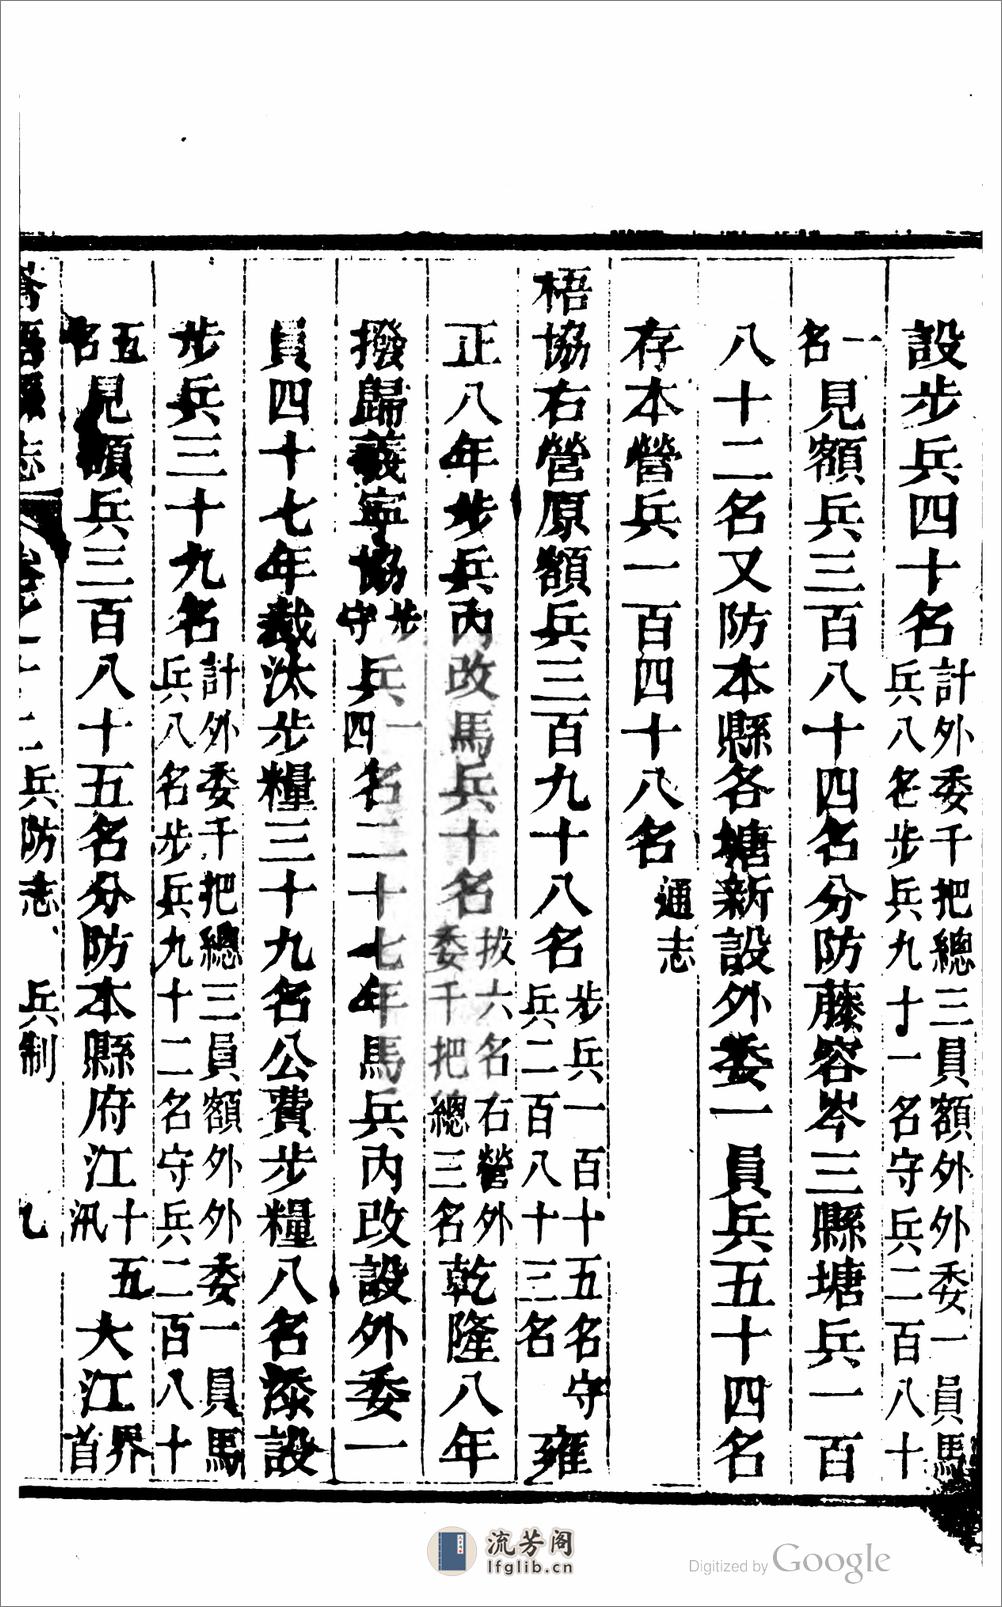 設步兵四十名計外委千把總三員額外外委一員馬兵八名步兵九十一名守兵二百八十
一名見額兵三百八十四名分防藤容岑三縣塘兵一百
八十二名又防本縣各塘新設外委一員兵五十四名
存本營兵一百四十八名通志
梧協右營原額兵三百九十八名步兵一百十五名守兵二百八十三名雍
正八年步兵內改馬兵十名拔六名右營外委千把總三名乾隆八年
撥歸義寧協步守兵一四名二十七年馬兵內改設外委一
員四十七年裁汰步糧三十九名公費步糧八名添設
步兵三十九名計外委千把總三員額外外委一員馬兵八名步兵九十二名守兵二百八十
五名見額兵三百八十五名分防本縣府江十五汛大江界首
蒼梧縣志 卷十二兵防志 兵制 九
流芳阁
lfglib.cn
Digitized by Google